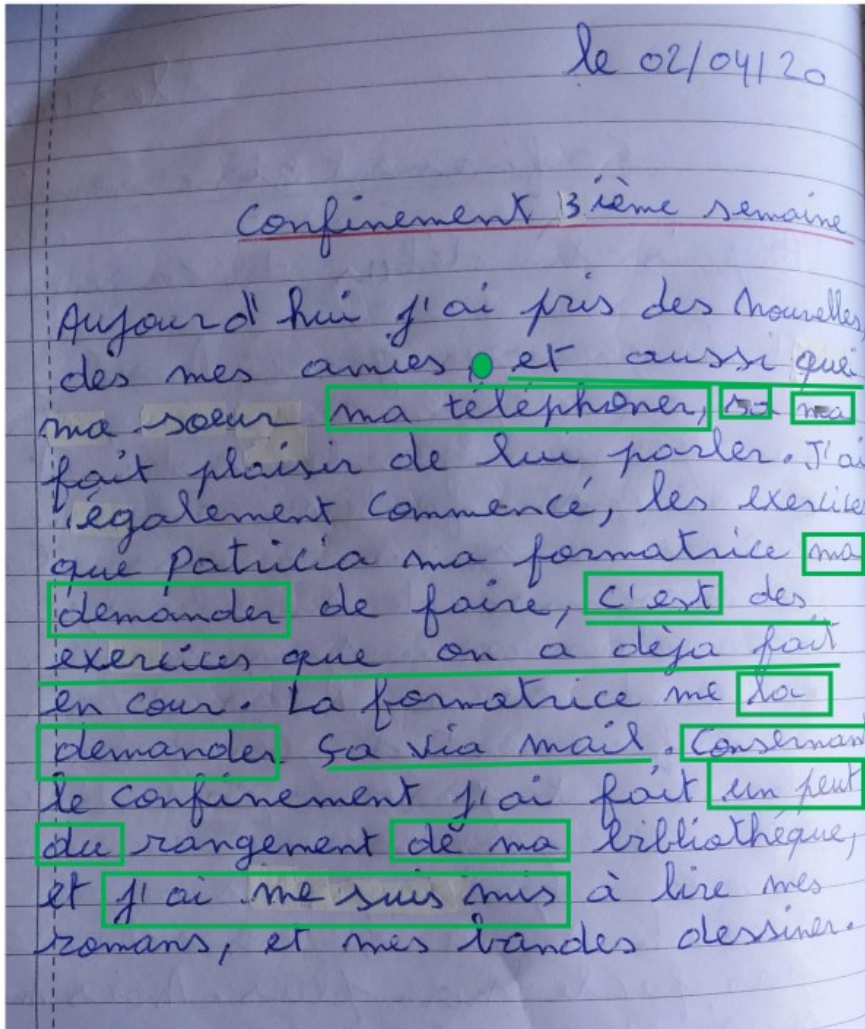 le 02/04/20
Confinement 3ième semaine
Aujourd'hui j'ai pris des nouvelles,
des mes amies, et aussi que
ma soeur ma téléphoner, sa ma
fait plaisir de lui parler. J'ai
également commencé, les exercice
que Patricia ma formatrice ma
demander de faire, c'est des
exercices que on a déja fait
en cour. La formatrice me la
demander ça via mail. Consernan
le confinement j'ai fait un peut
du rangement de ma bibliothéque,
et j'ai me suis mis à lire mes
romans, et mes bandes dessiner.